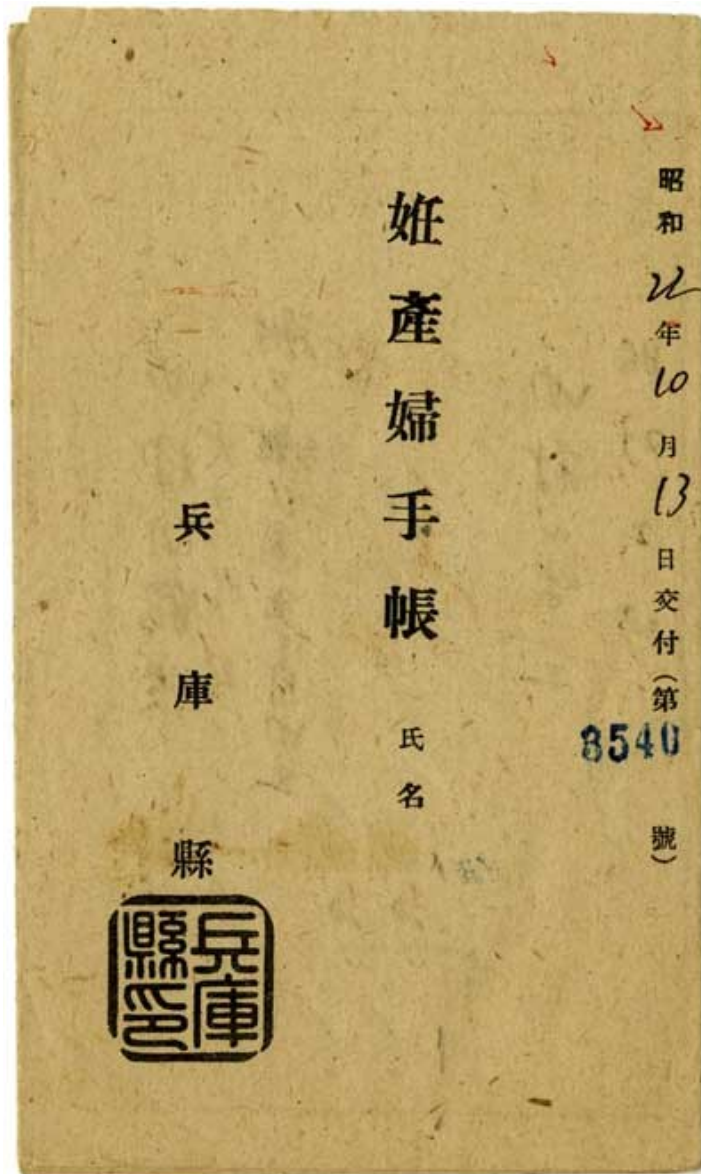 昭和22年10月13日交付(第8540號)
姙產婦手帳 氏名
兵庫縣
兵庫縣印